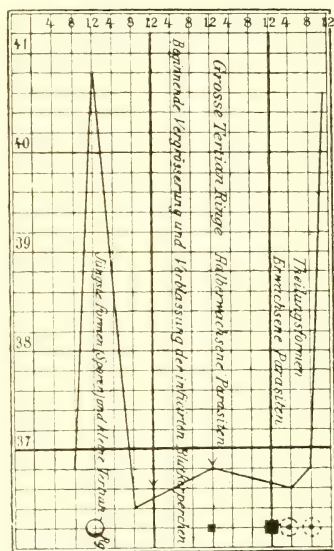 4 8 12 4 8 12 4 8 12 4 8 12 4 8 12
41
40
39
38
37
Jüngste Formen (Sporen) und kleine Tertian-Rg
Beginnende Vergrösserung und Verblassung der inficirten Blutkörperchen
Grosse Tertian Ringe Halberwachsene Parasiten
Erwachsene Parasiten
Theilungsformen